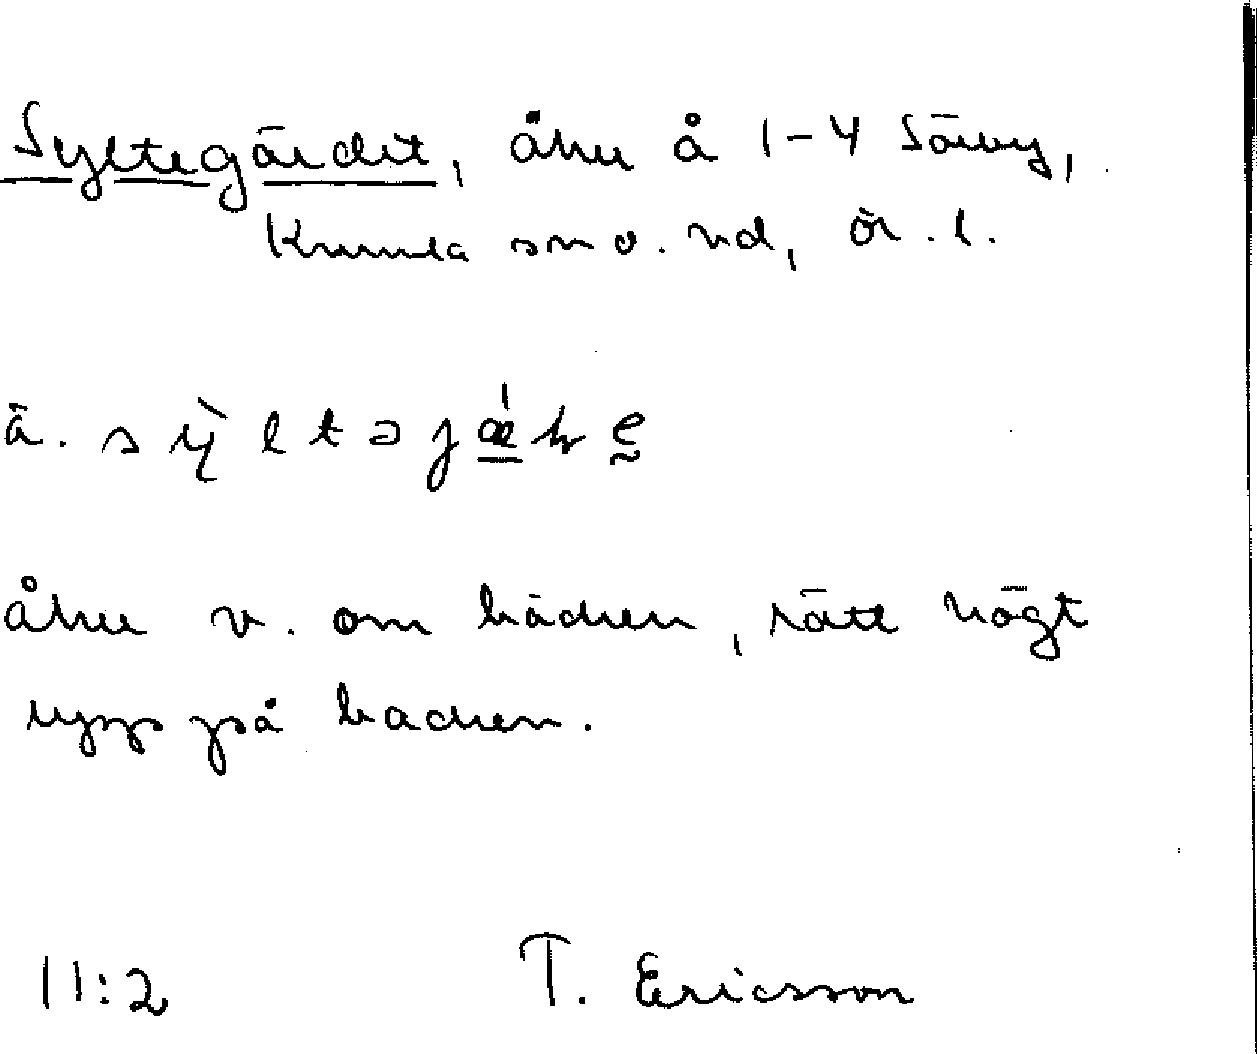 Syltegärdet, åker å 1-4 Sörby,
Kumla sn o. hd, Ör. l.
ä. sỳltəjǽḷe
åker v. om bäcken, rätt högt
upp på backen.
11:2 T. Ericsson